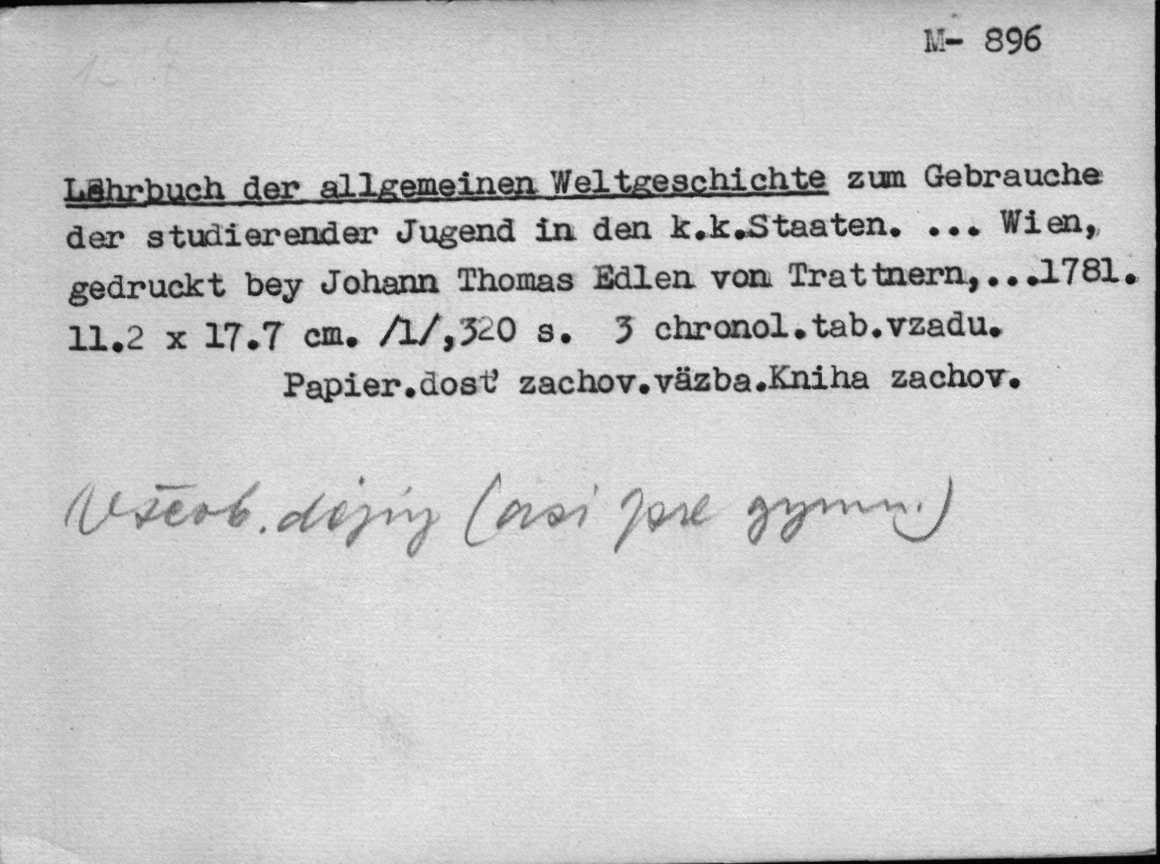 M- 896
Lehrbuch der allgemeinen Weltgeschichte zum Gebrauche
der studierender Jugend in den k.k.Staaten. ... Wien,
gedruckt bey Johann Thomas Edlen von Trattnern,...1781.
11.2 x 17.7 cm. /1/,320 s. 3 chronol.tab.vzadu.
Papier.dosť zachov.väzba.Kniha zachov.
Všeob. dejiny (asi pre gymn.)